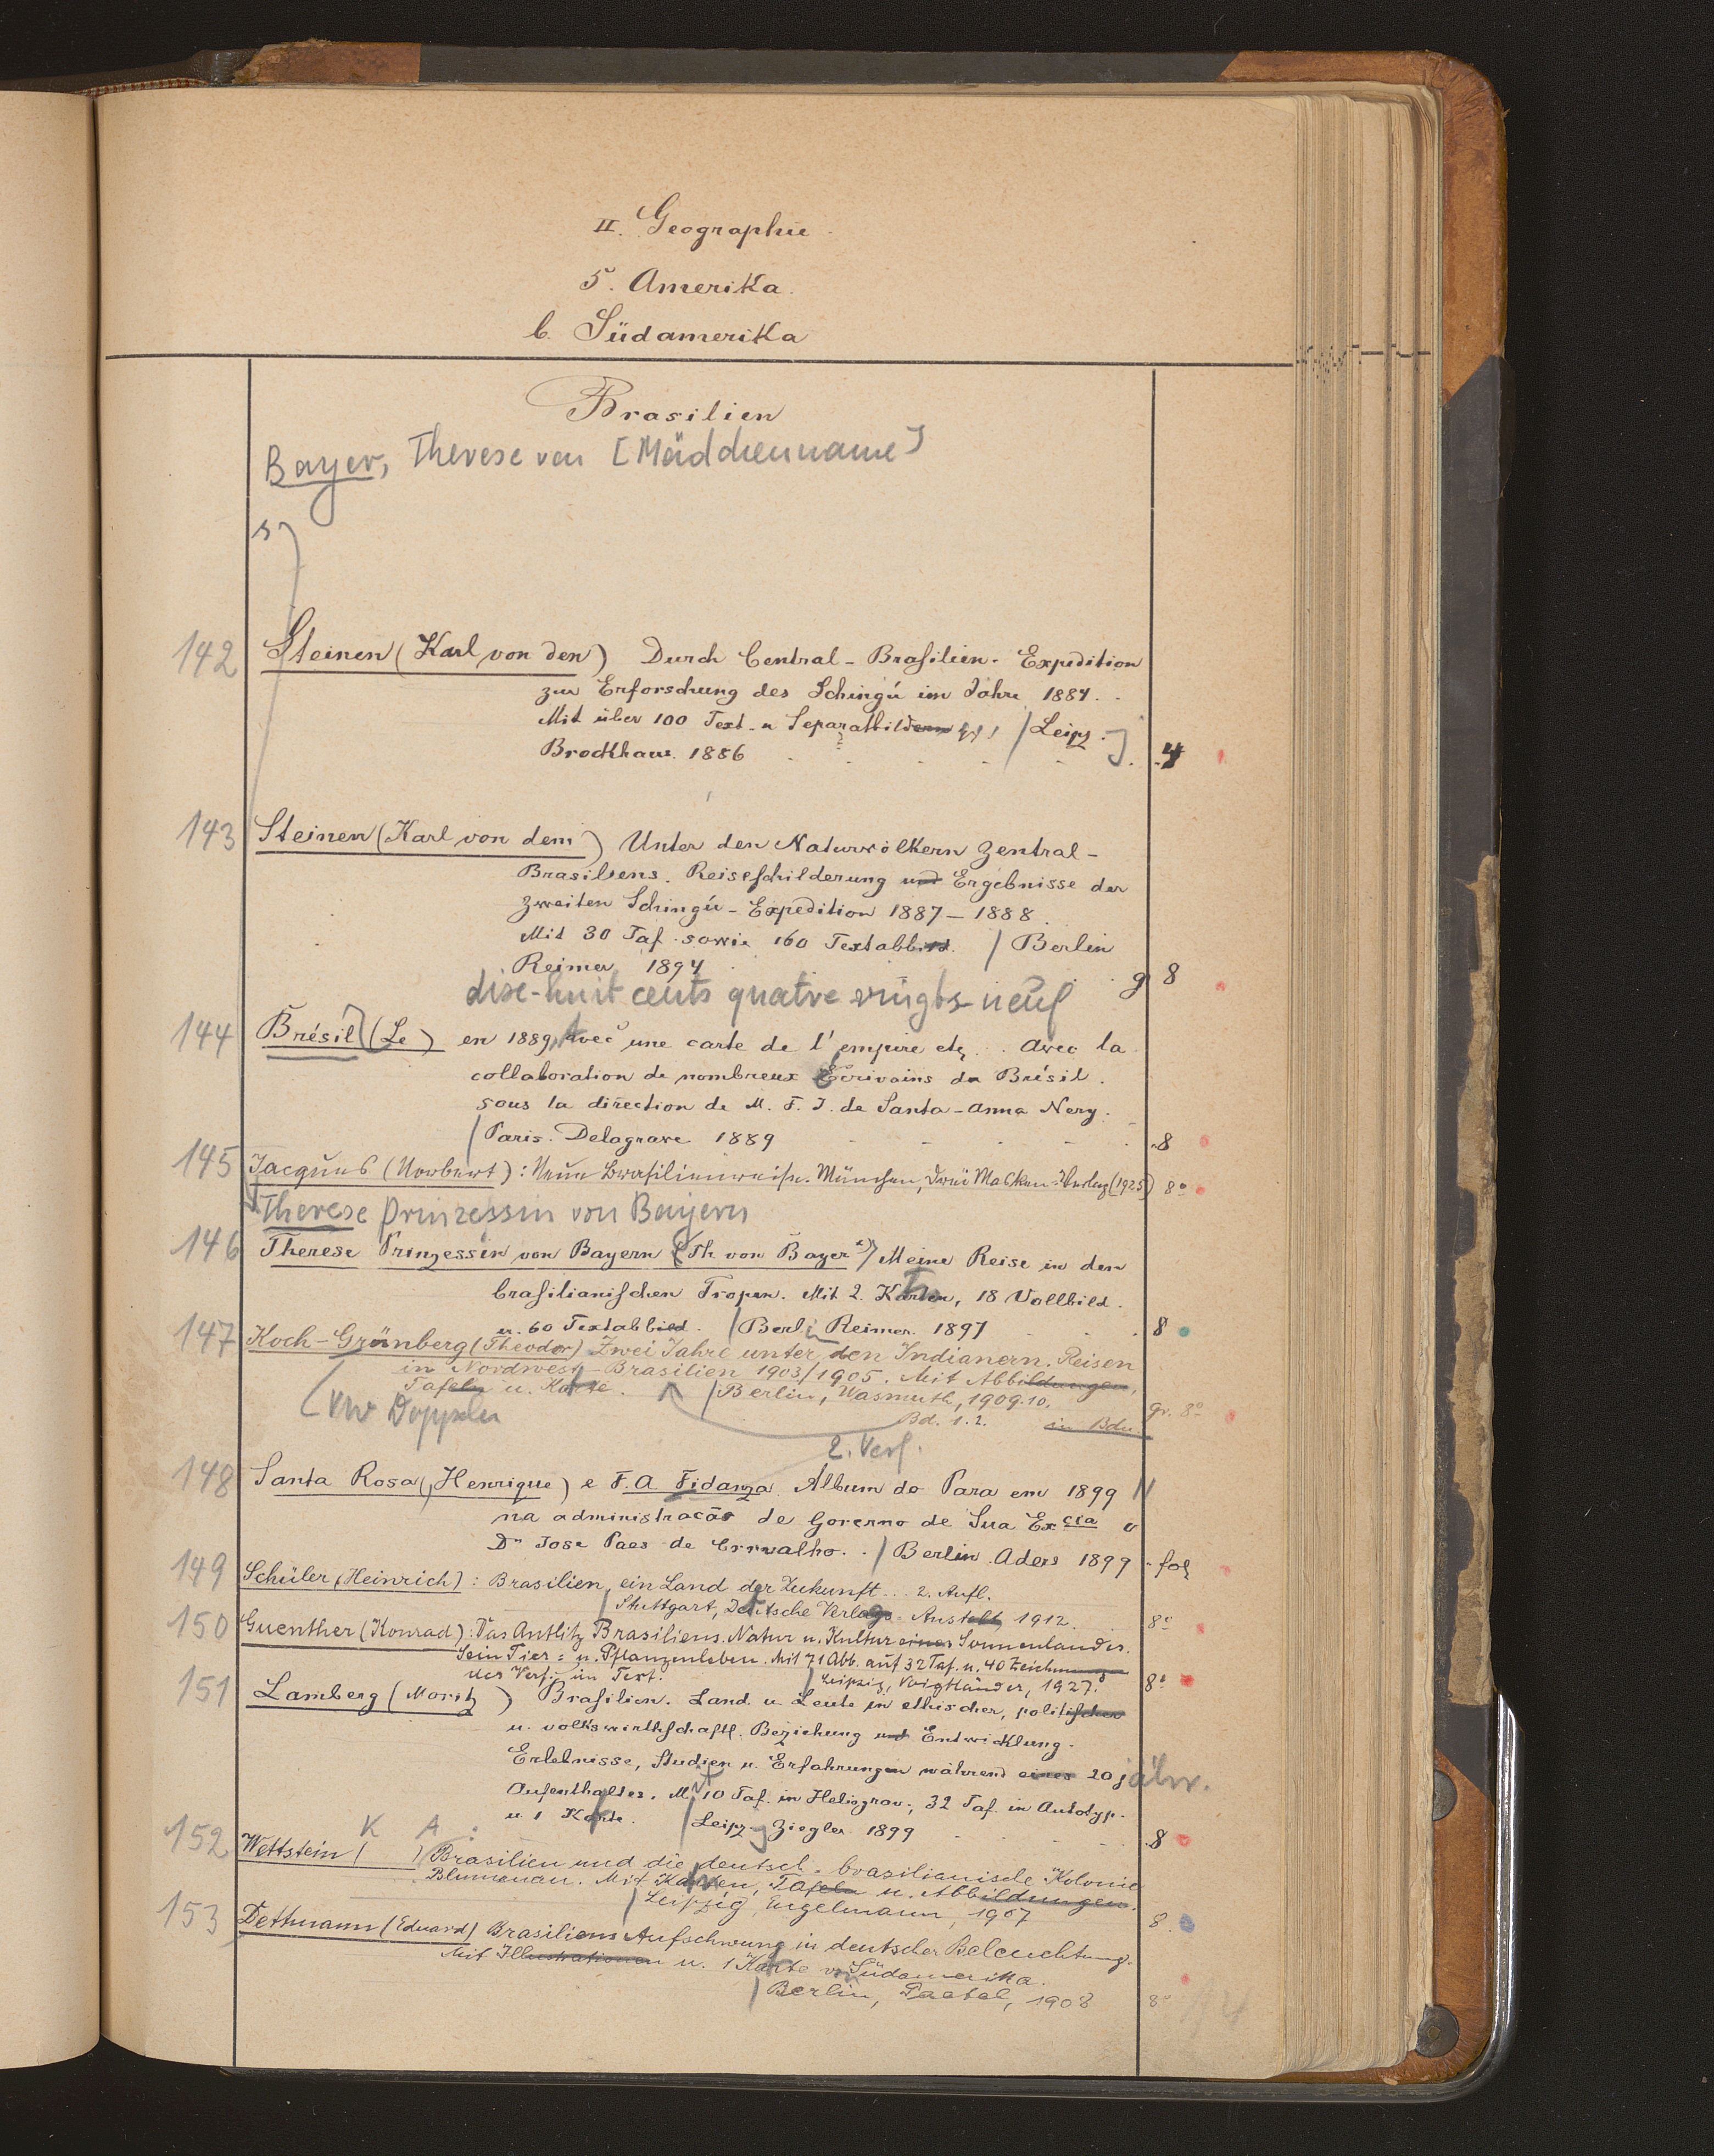 II. Geographie.
5. Amerika.
b. Südamerika
Brasilien
Bayer, Therese von [Mädchenname]
142 Steinen (Karl von den) Durch Central-Brasilien. Expedition
zur Erforschung des Schingú im Jahre 1884.
Mit über 100 Text- u Separatbildern / Leipz.
Brockhaus. 1886 4
143 Steinen (Karl von dem) Unter den Naturvölkern Zentral-
Brasiliens. Reiseschilderung und Ergebnisse der
zweiten Schingú-Expedition 1887–1888.
Mit 30 Taf. sowie 160 Textabbild. / Berlin
Reimer 1894 g 8
dixe-huit cents quatre vingts-neuf
144 Brésil (Le) en 1889, Avec une carte de l'empire etc. Avec la
collaboration de nombreux Écrivains du Brésil.
sous la direction de M. F. J. de Santa-Anna Nery.
/ Paris. Delagrave 1889 8
145 Jacques (Norbert): Neue Brasilienreise. München, Drei Masken-Verlag (1925) 8°
Therese Prinzessin von Bayern
146 Therese Prinzessin von Bayern (Th. von Bayer) Meine Reise in den
brasilianischen Tropen. Mit 2. Karten, 18 Vollbild.
u. 60 Textabbild. / Berlin Reimer. 1897 8
147 Koch-Grünberg (Theodor) Zwei Jahre unter den Indianern. Reisen
in Nordwest-Brasilien 1903/1905. Mit Abbildungen,
Tafeln u. Karte. / Berlin, Wasmuth, 1909.10.
Bd. 1.2. in Bdn. gr. 8°
Vw Doppeln
2. Verf.
148 Santa Rosa (Henrique) e F. A Fidanza Album do Para em 1899
na administracão de Governo de Sua Excia o
Dr Jose Paes de Carvalho. / Berlin. Aders 1899 fol
149 Schüler (Heinrich): Brasilien, ein Land der Zukunft... 2. Aufl.
/ Stuttgart, Deutsche Verlags-Anstalt, 1912. 8°
150 Guenther (Konrad): Das Antlitz Brasiliens. Natur u. Kultur eines Sonnenlandes.
Sein Tier- u. Pflanzenleben. Mit 71 Abb. auf 32 Taf. u. 40 Zeichnung
des Verf. im Text. / Leipzig, Voigtländer, 1927. 8°
151 Lamberg (Moritz) Brasilien. Land u. Leute in ethischer, politischer
u. volkswirthschaftl. Beziehung und Entwicklung.
Erlebnisse, Studien u. Erfahrungen während eines 20 jähr.
Aufenthaltes. Mit 10 Taf. in Heliograv., 32 Taf. in Autotyp.
u. 1 Karte. / Leipz. Ziegler 1899 8
152 Wettstein (K A) : Brasilien und die deutsch-brasilianische Kolonie
Blumenau. Mit Karten, Tafeln u. Abbildungen.
/ Leipzig, Engelmann, 1907 8
153 Dettmann (Eduard) Brasiliens Aufschwung in deutscher Beleuchtung.
Mit Illustrationen u. 1 Karte von Südamerika.
/ Berlin, Paetel, 1908 8°